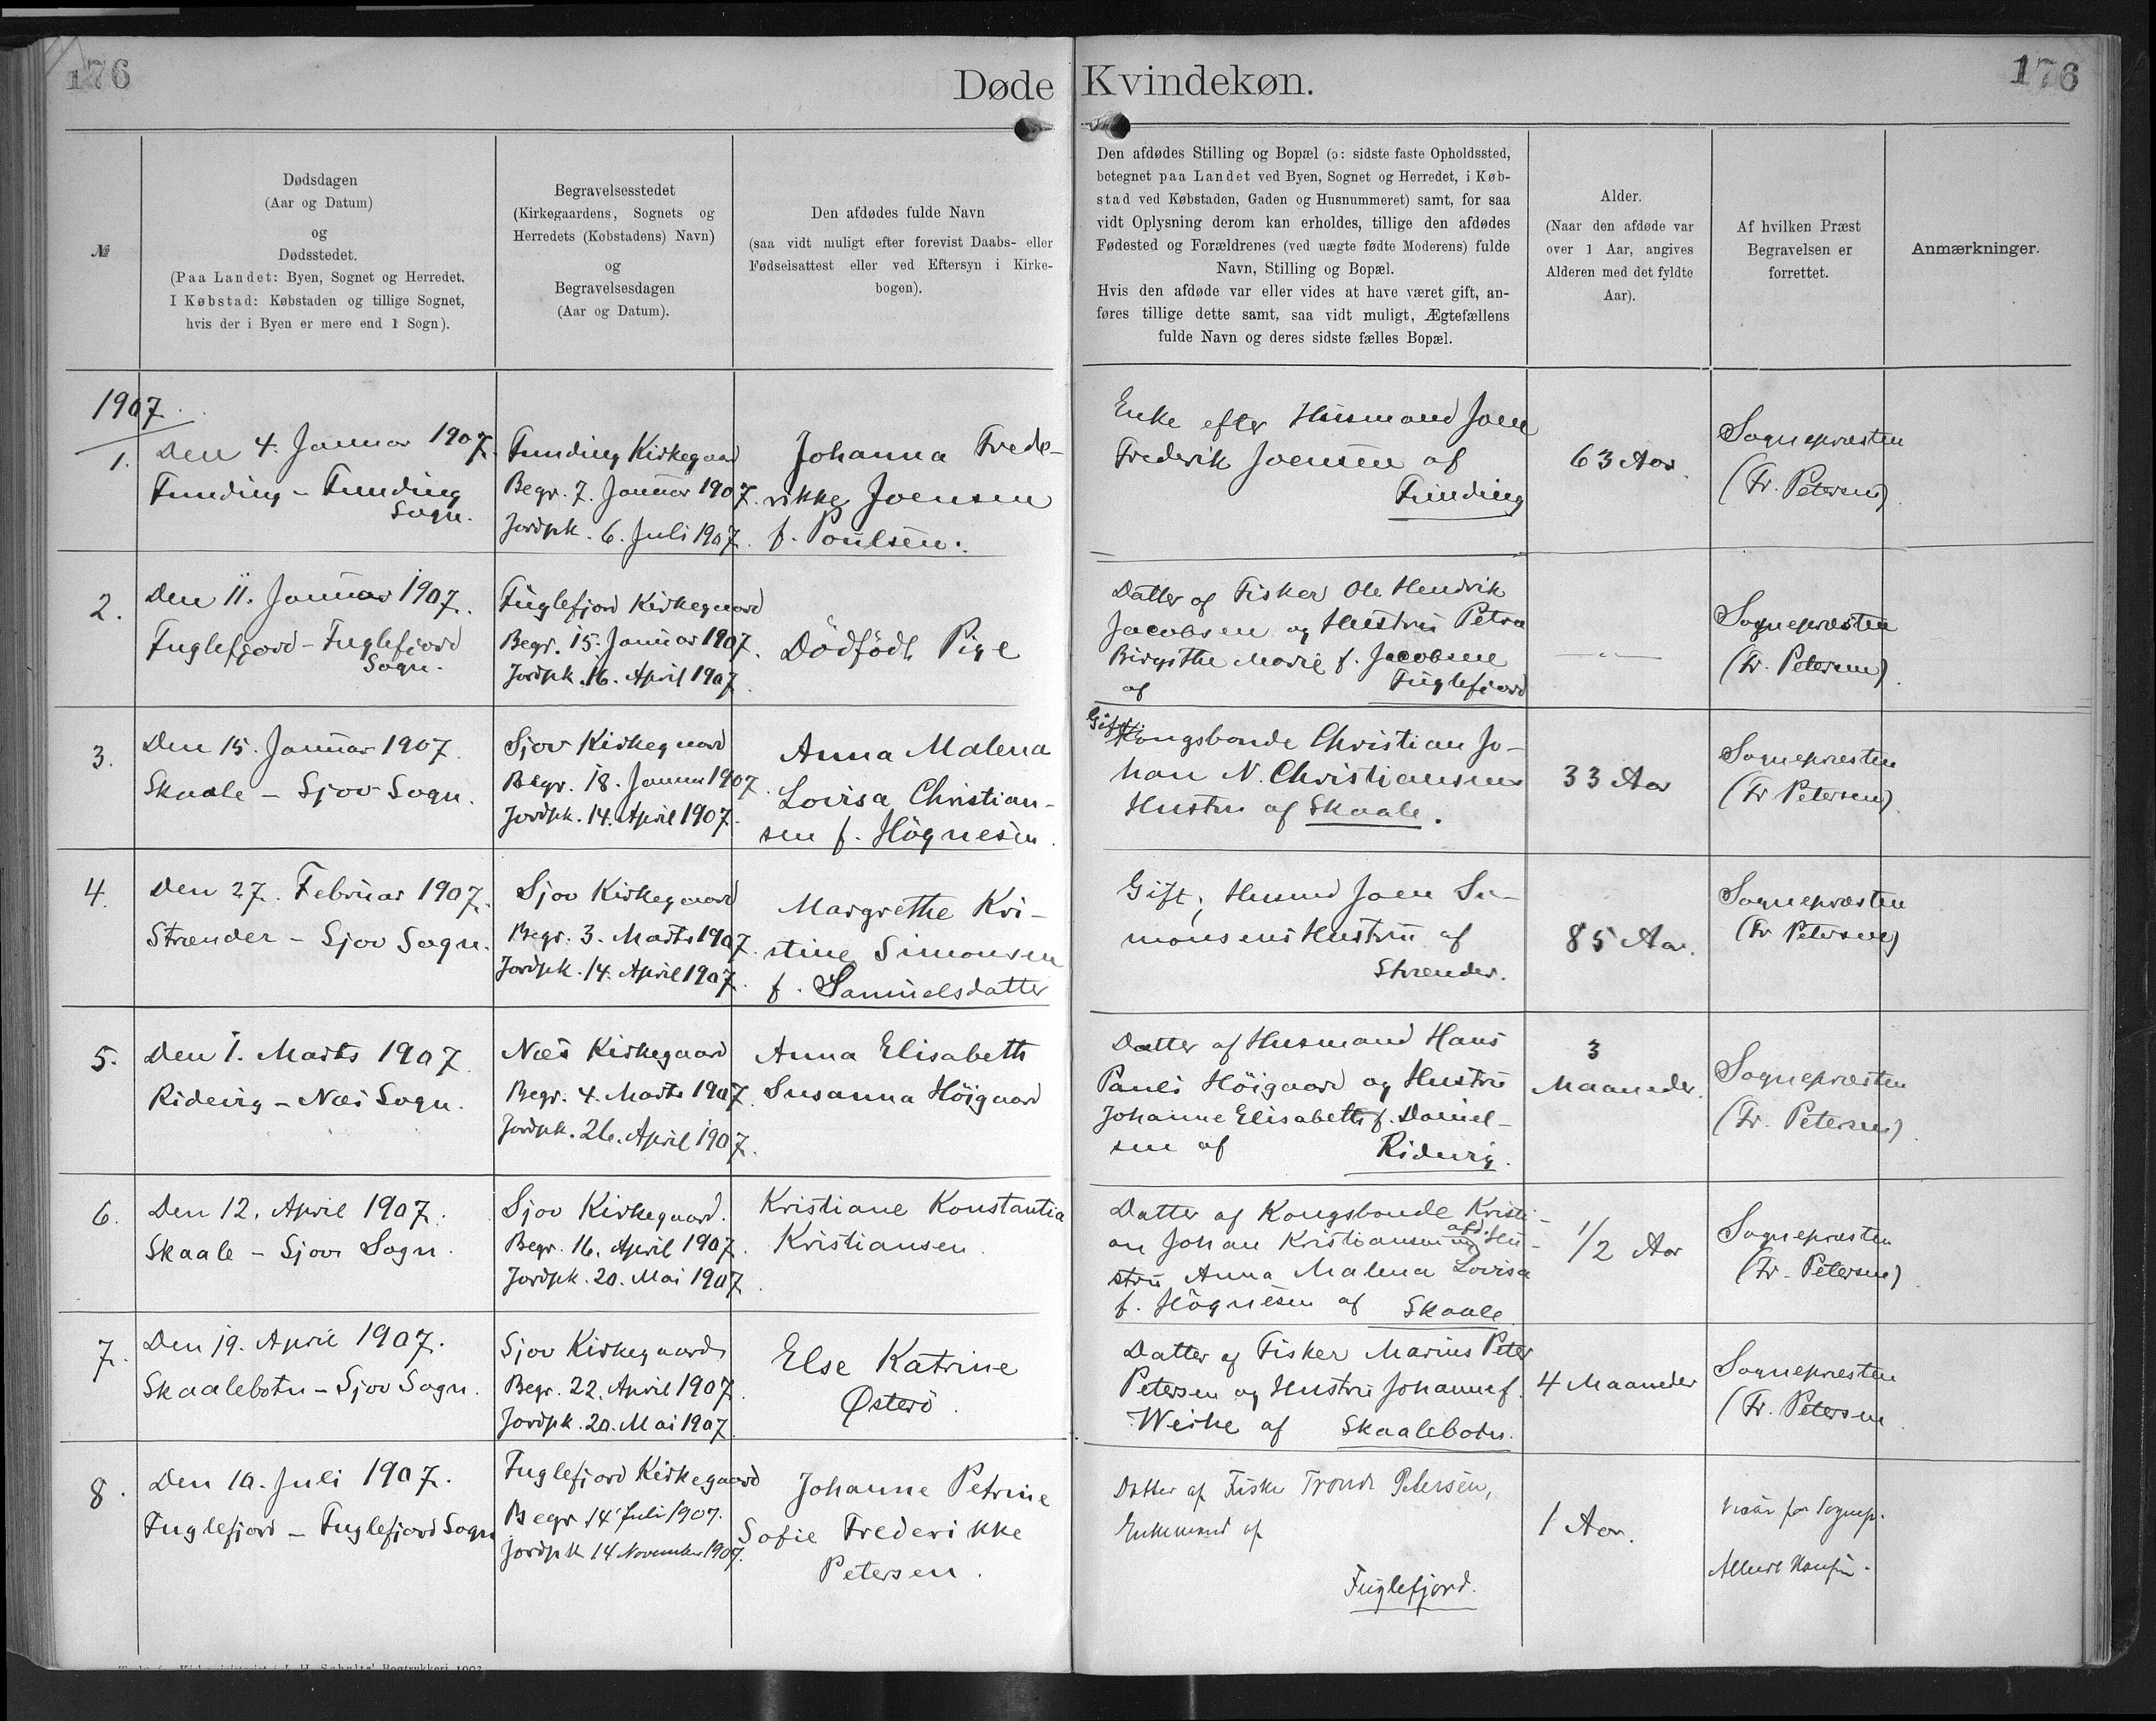 176
Døde
Kvindekøn.
176
№
Dødsdagen
(Aar og Datum)
og
Dødsstedet.
(Paa Landet: Byen, Sognet og Herredet.
I Købstad: Købstaden og tillige Sognet,
hvis der i Byen er mere end 1 Sogn).
Begravelsesstedet
(Kirkegaardens, Sognets og
Herredets (Købstadens) Navn)
og
Begravelsesdagen
(Aar og Datum).
Den afdødes fulde Navn
(saa vidt muligt efter forevist Daabs- eller
Fødselsattest eller ved Eftersyn i Kirke-
bogen).
Den afdødes Stilling og Bopæl (ɔ: sidste faste Opholdssted,
betegnet paa Landet ved Byen, Sognet og Herredet, i Køb-
stad ved Købstaden, Gaden og Husnummeret) samt, for saa
vidt Oplysning derom kan erholdes, tillige den afdødes
Fødested og Forældrenes (ved uægte fødte Moderens) fulde
Navn, Stilling og Bopæl.
Hvis den afdøde var eller vides at have været gift, an-
føres tillige dette samt, saa vidt muligt, Ægtefællens
fulde Navn og deres sidste fælles Bopæl.
Alder.
(Naar den afdøde var
over 1 Aar, angives
Alderen med det fyldte
Aar).
Af hvilken Præst
Begravelsen er
forrettet.
Anmærkninger.
1907.
1.
Den 4. Januar 1907.
Funding - Funding
Sogn.
Funding Kirkegaard
Begr. 7. Januar 1907.
Jordpk. 6. Juli 1907.
Johanna Frede-
rikke Joensen
f. Poulsen.
Enke efter Husmand Joen
Frederik Joensen af
Funding
63 Aar.
Sognepræsten
(Fr. Petersen).
2.
Den 11. Januar 1907.
Fuglefjord - Fuglefjord
Sogn.
Fuglefjord Kirkegaard
Begr. 15. Januar 1907.
Jordpk. 16. April 1907.
Dödfödt Pige
Datter af Fisker Ole Hendrik
Jacobsen og Hustru Petra
Birgithe Marie f. Jacobsen
af Fuglefjord
— " —
Sognepræsten
(Fr. Petersen).
3.
Den 15. Januar 1907.
Skaale - Sjov Sogn.
Sjov Kirkegaard
Begr. 18. Januar 1907.
Jordpk. 14. April 1907.
Anna Malena
Lovisa Christian-
sen f. Högnesen.
Gift, Kongsbonde Christian Jo-
han N. Christiansens
Hustru af Skaale.
33 Aar
Sognepræsten
(Fr Petersen).
4.
Den 27. Februar 1907.
Strænder - Sjov Sogn.
Sjov Kirkegaard
Begr. 3. Marts 1907.
Jordpk. 14. April 1907.
Margrethe Kri-
stine Simonsen
f. Samuelsdatter
Gift; Husmd Joen Si-
monsens Hustru af
Strænder.
85 Aar.
Sognepræsten
(Fr Petersen)
5.
Den 1. Marts 1907.
Ridevig - Næs Sogn.
Næs Kirkegaard
Begr. 4. Marts 1907.
Jordpk. 26. April 1907.
Anna Elisabeth
Susanna Höigaard
Datter af Husmand Hans
Pauli Höigaard og Hustru
Johanne Elisabeth f. Daniel-
sen af Ridevig.
3
Maaneder.
Sognepræsten
(Fr. Petersen).
6.
Den 12. April 1907.
Skaale - Sjov Sogn.
Sjov Kirkegaard.
Begr. 16. April 1907.
Jordpk. 20. Mai 1907.
Kristiane Konstantia
Kristiansen.
Datter af Kongsbonde Kristi-
an Johan Kristiansen og afd. Hu-
stru Anna Malena Lovisa
f. Högnesen af Skaale
1/2 Aar
Sognepræsten
(Fr. Petersen).
7.
Den 19. April 1907.
Skaalebotn - Sjov Sogn.
Sjov Kirkegaard
Begr. 22. April 1907.
Jordpk. 20. Mai 1907.
Else Katrine
Østerö.
Datter af Fisker Marius Peter
Petersen og Hustru Johanne f.
Weihe af Skaalebotn.
4 Maaneder
Sognepræsten
(Fr. Petersen
8.
Den 10. Juli 1907.
Fuglefjord - Fuglefjord Sogn
Fuglefjord Kirkegaard
Begr 14 Juli 1907.
Jordpk 14 November 1907.
Johanne Petrine
Sofie Frederikke
Petersen.
Datter af Fisker Trondr Petersen,
Enkemand af
Fuglefjord.
1 Aar.
Vicar for Sognep.
Albert